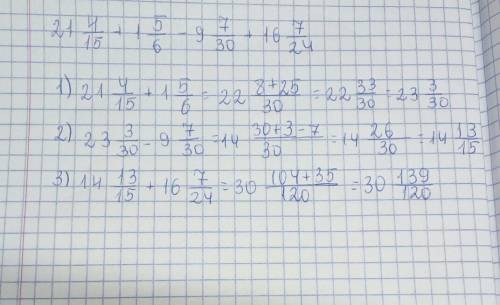 21 4/15 + 1 5/6 - 9 7/30 + 16 7/24
1) 21 4/15 + 1 5/6 = 22 (8+25)/30 = 22 33/30 = 23 3/30
2) 23 3/30 - 9 7/30 = 14 (30+3-7)/30 = 14 26/30 = 14 13/15
3) 14 13/15 + 16 7/24 = 30 (104+35)/120 = 30 139/120